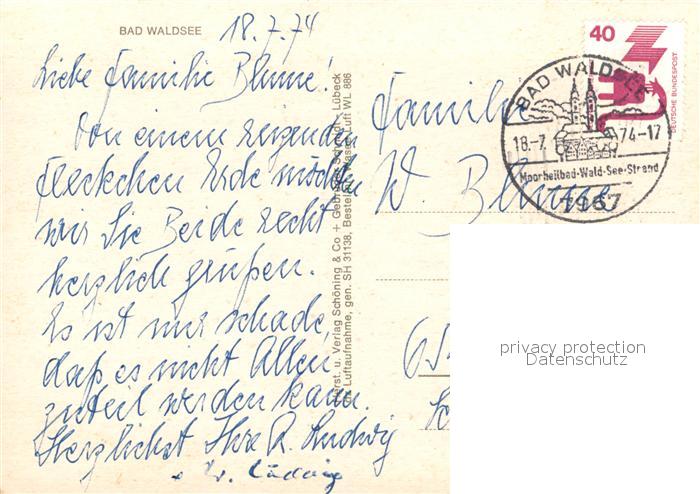 BAD WALDSEE
18.7.74
Liebe Familie Blume!
Von einem reizenden
Fleckchen Erde möchten
wir Sie Beide recht
herzlich grüßen.
Es ist nur schade,
daß es nicht Allen
zuteil werden kann.
Herzlichst Ihre R. Ludwig
Familie
W Blume
40
DEUTSCHE BUNDESPOST
BAD WALDSEE
18.-7. 74-17
Moorheilbad-Wald-See-Strand
7967
Verlag Schöning & Co + Lübeck
Luftaufnahme, gen. SH 31138, Luft WL 886
privacy protection
Datenschutz